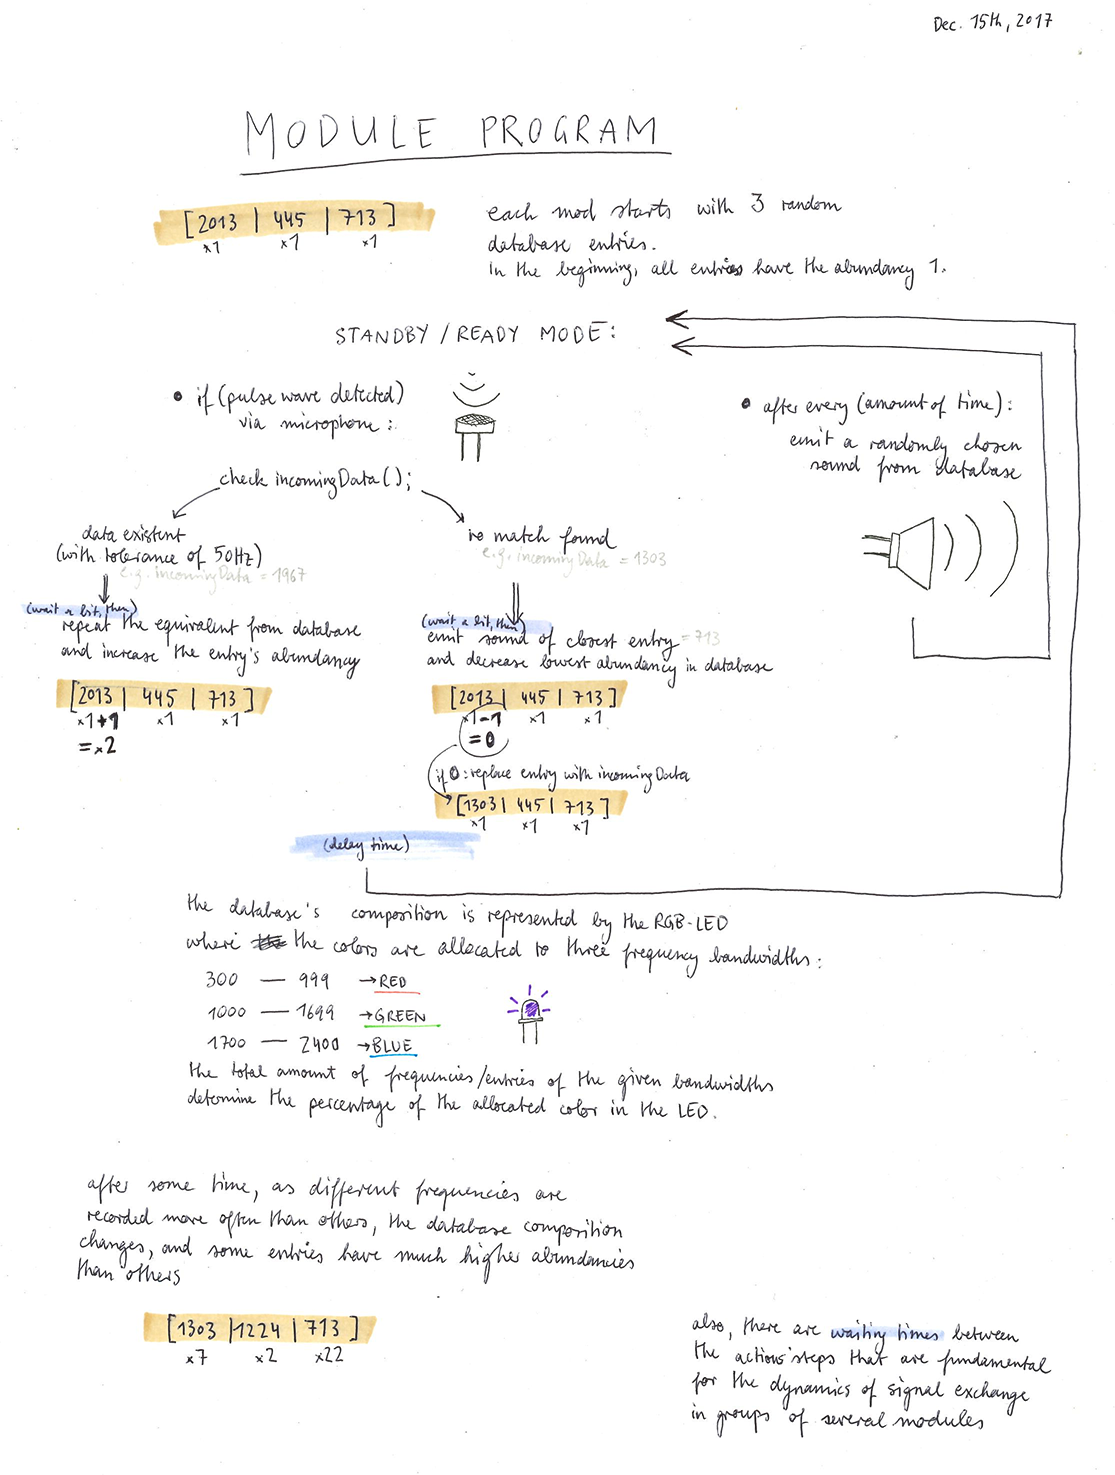 Dec. 15th, 2017
MODULE PROGRAM
[2013 | 445 | 713]
x1 x1 x1
each mod starts with 3 random
database entries.
In the beginning, all entries have the abundancy 1.
STANDBY / READY MODE:
• if (pulse wave detected)
via microphone:
check incomingData();
data existent
(with tolerance of 50Hz)
e.g. incomingData = 1967
(wait a bit, then)
repeat the equivalent from database
and increase the entry's abundancy
[2013 | 445 | 713]
x1+1 x1 x1
=x2
no match found
e.g. incomingData = 1303
(wait a bit, then)
emit sound of closest entry = 713
and decrease lowest abundancy in database
[2013 | 445 | 713]
x1-1 x1 x1
=0
if 0: replace entry with incomingData
[1303 | 445 | 713]
x1 x1 x1
(delay time)
• after every (amount of time):
emit a randomly chosen
sound from database
the database's composition is represented by the RGB-LED
where the colors are allocated to three frequency bandwidths:
300 — 999 →RED
1000 — 1699 →GREEN
1700 — 2400 →BLUE
the total amount of frequencies/entries of the given bandwidths
determine the percentage of the allocated color in the LED.
after some time, as different frequencies are
recorded more often than others, the database composition
changes, and some entries have much higher abundancies
than others
[1303 | 1224 | 713]
x7 x2 x22
also, there are waiting times between
the actions'steps that are fundamental
for the dynamics of signal exchange
in groups of several modules